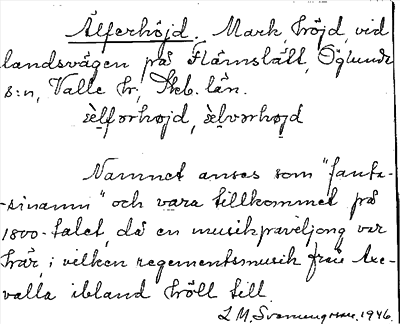 Älferhöjd. Mark, höjd, vid
landsvägen på Flämslätt, Öglunda
s:n, Valle hr, Skb. län.
sèlfərhøjd, sèlvərhøjd
Namnet anses som "fanta-
-sinamn" och vara tillkommet på
1800-talet, då en musikpaveljong var
här, i vilken regementsmusik från Axe-
valla ibland höll till.
L M. 1946.